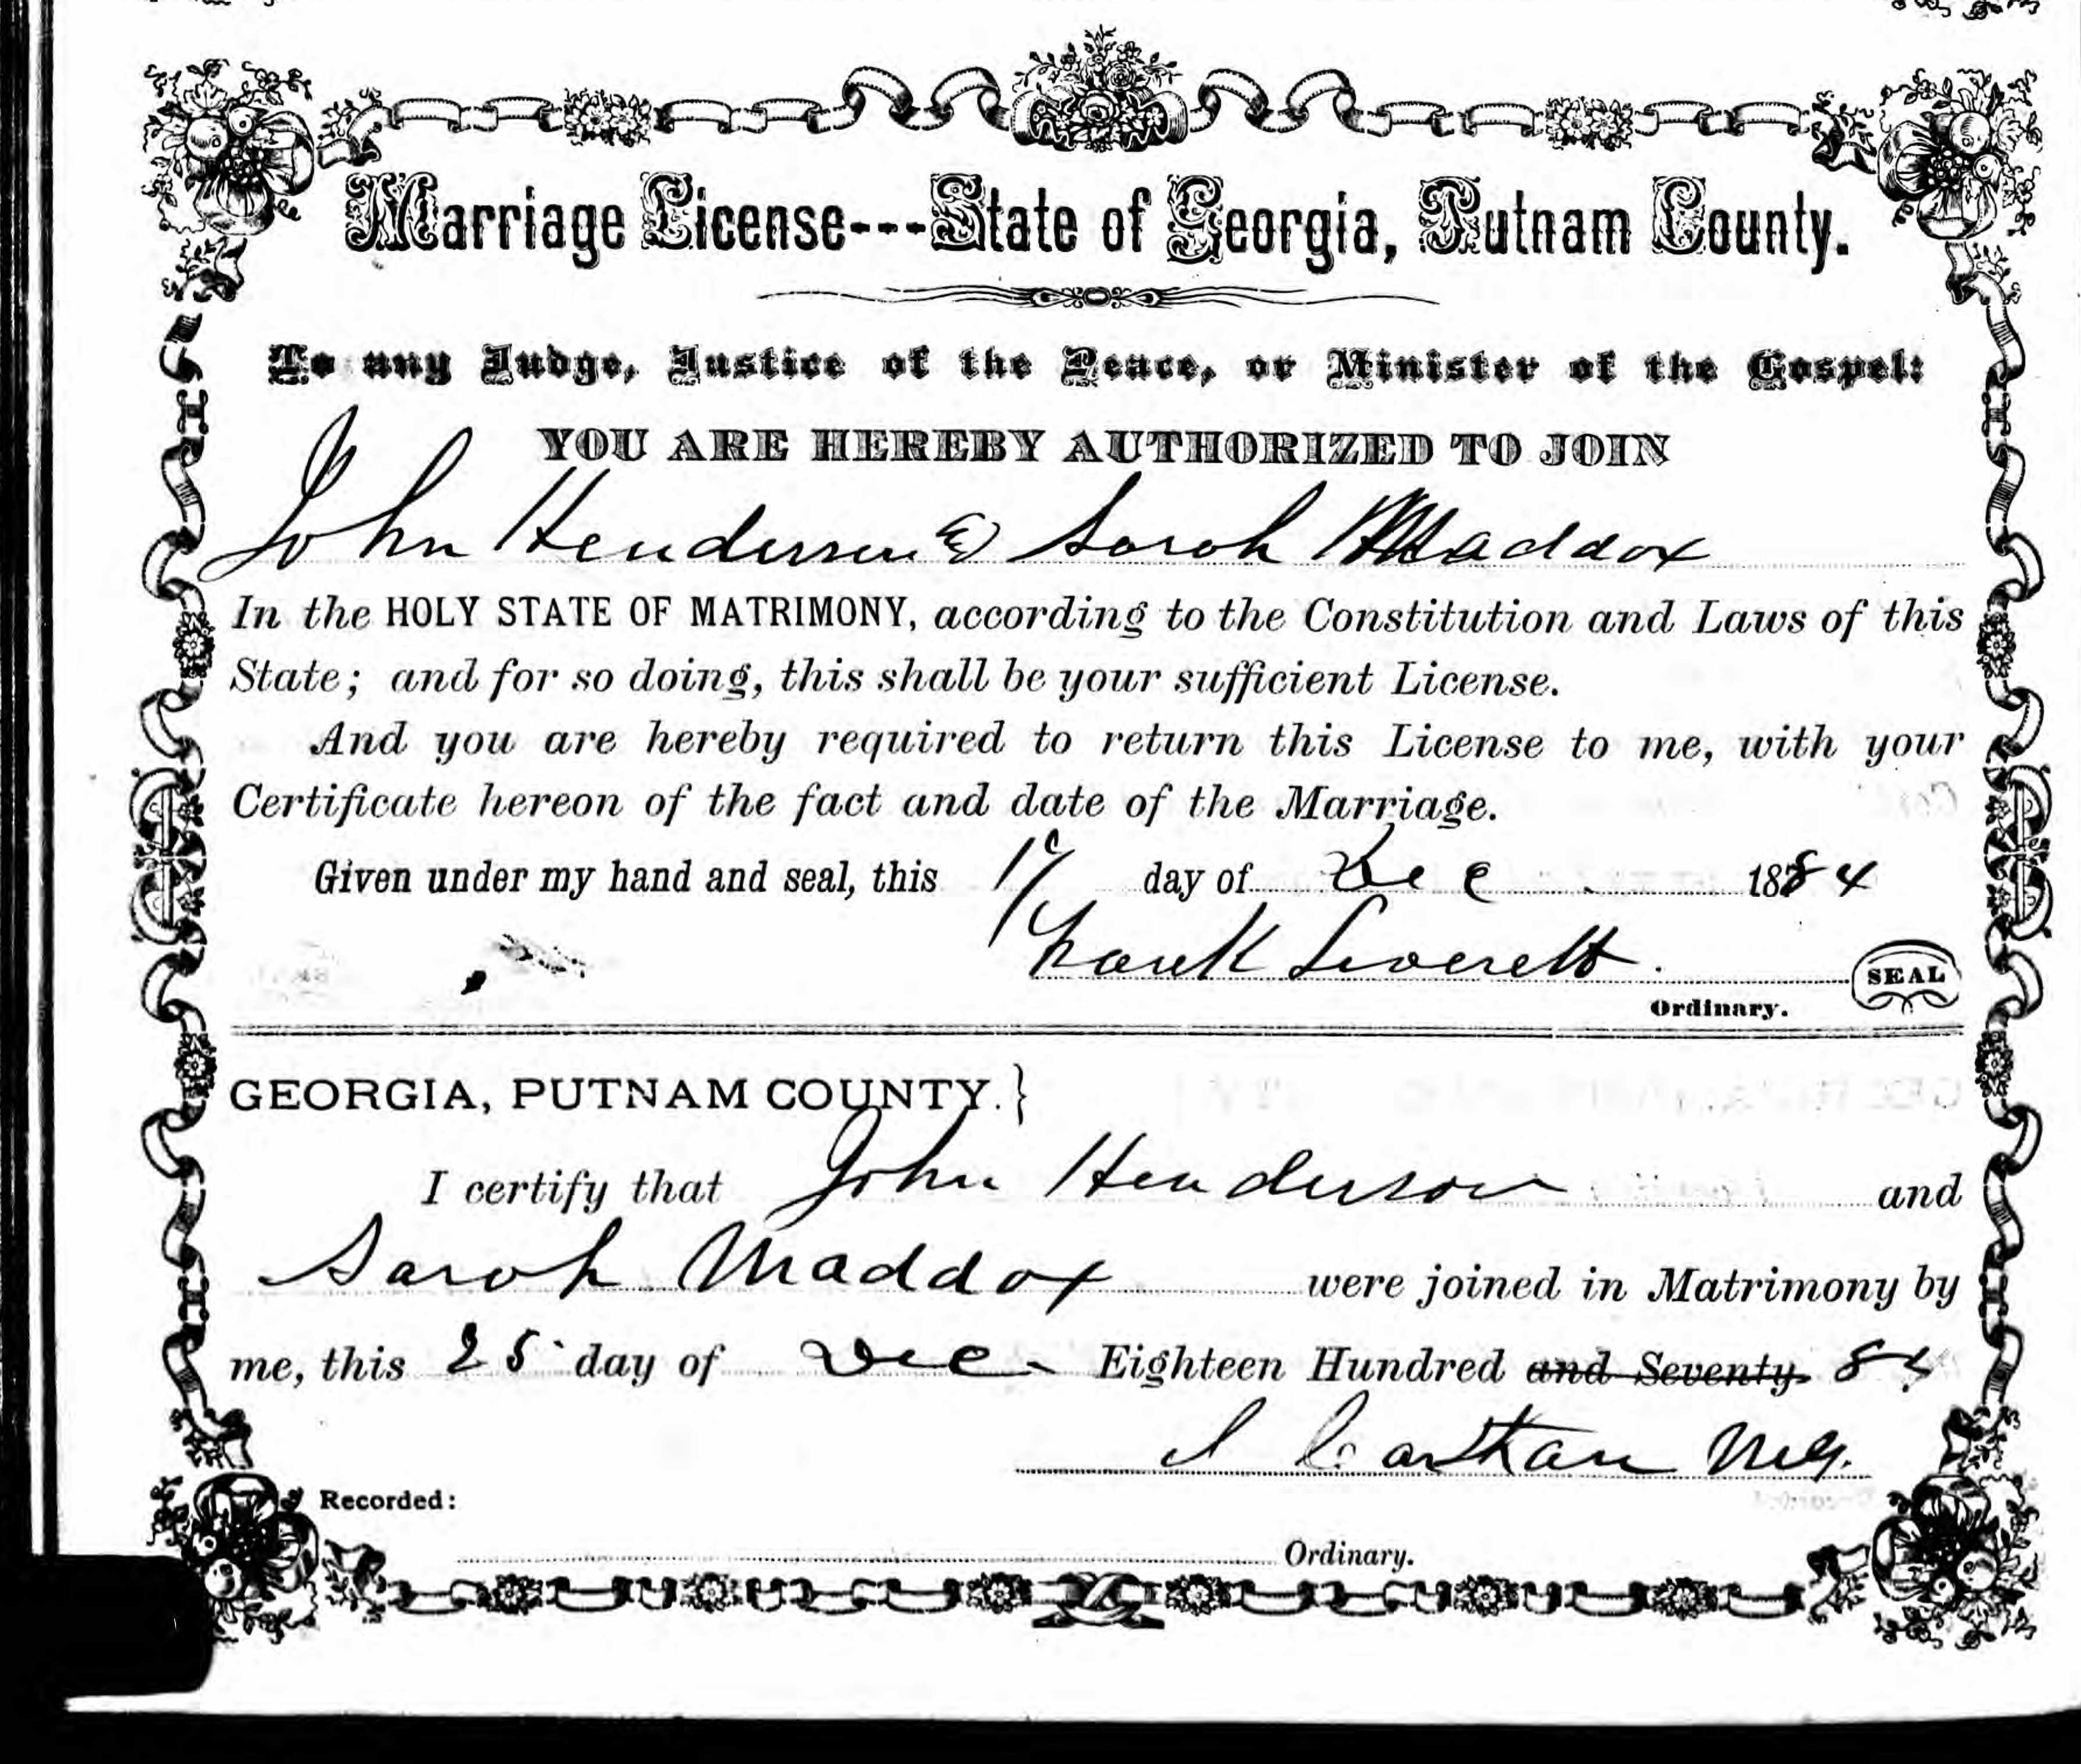 Marriage License---State of Georgia, Putnam County.
To any Judge, Justice of the Peace, or Minister of the Gospel:
YOU ARE HEREBY AUTHORIZED TO JOIN
John Henderson & Sarah Maddox
In the HOLY STATE OF MATRIMONY, according to the Constitution and Laws of this
State; and for so doing, this shall be your sufficient License.
And you are hereby required to return this License to me, with your
Certificate hereon of the fact and date of the Marriage.
Given under my hand and seal, this day of Dec 1884
Frank Leverett. SEAL
Ordinary.
GEORGIA, PUTNAM COUNTY.}
I certify that John Henderson and
Sarah Maddox were joined in Matrimony by
me, this 25 day of Dec Eighteen Hundred and Seventy. 84
Recorded:
Ordinary.